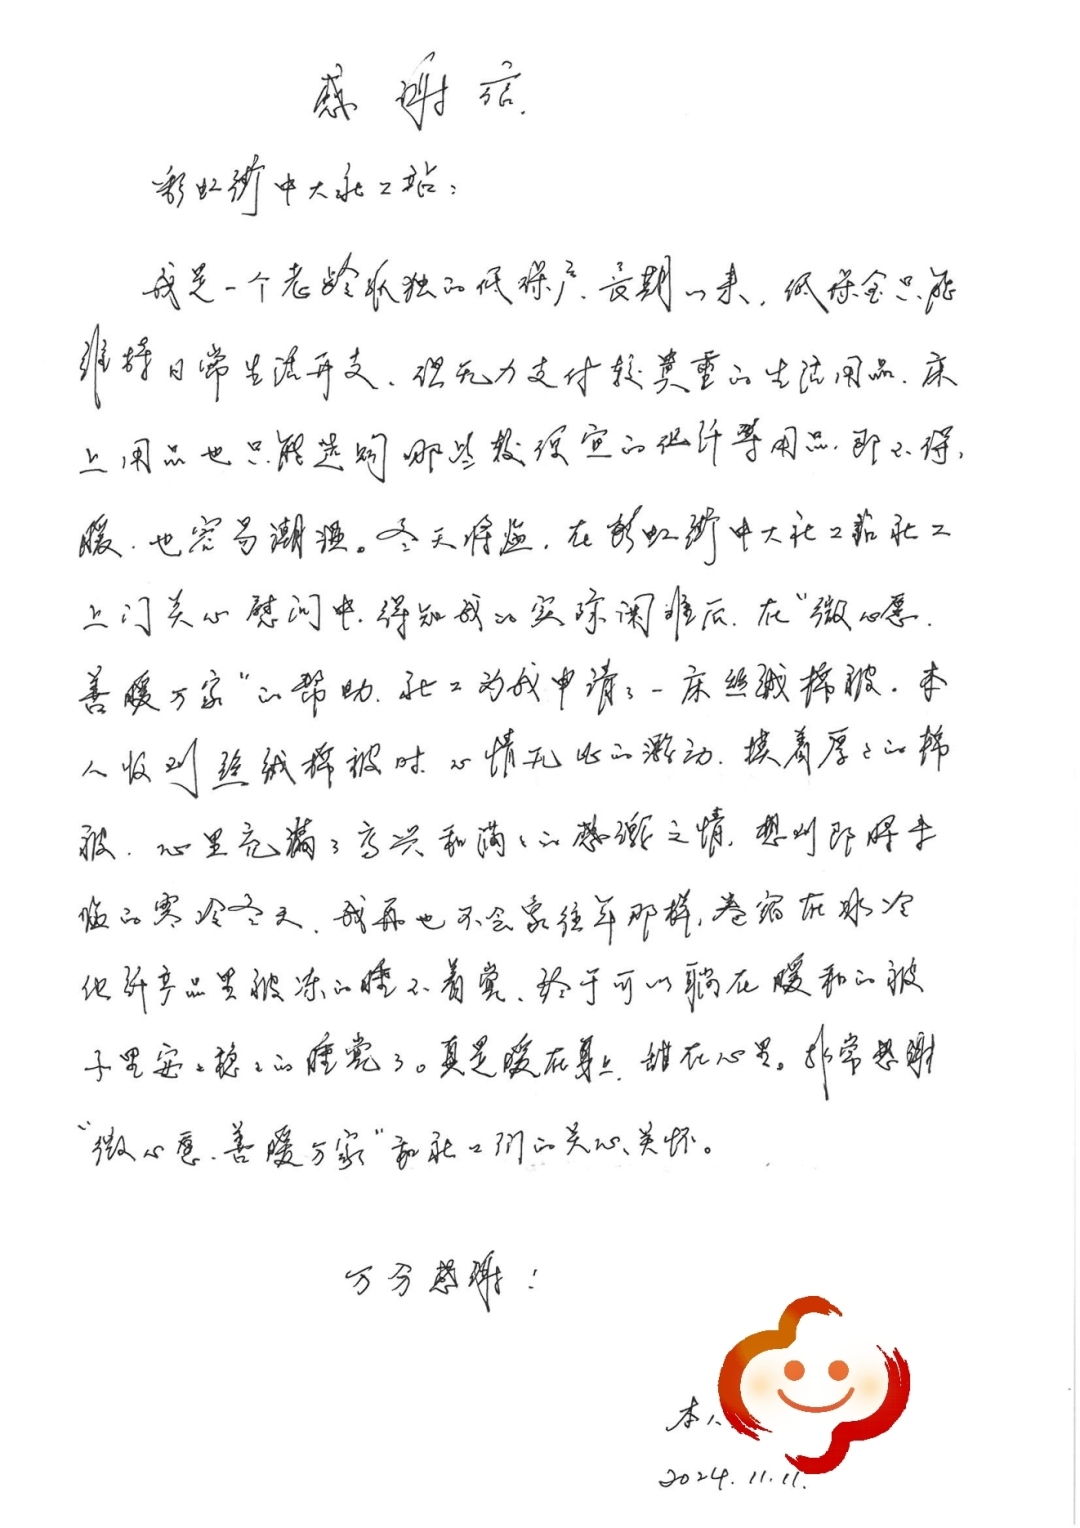 感谢信.
彩虹街中大社工站:
我是一个老龄孤独的低保户、长期以来,低保金只能
维持日常生活开支、但无力支付较贵重的生活用品、床
上用品也只能选购那些较便宜的化纤等用品、即不得,
暖、也容易潮湿。冬天将临,在彩虹街中大社工站社工
上门关心慰问中、得知我的实际困难后、在“微心愿、
善暖万家”的帮助、社工为我申请了一床丝绒棉被。本
人收到丝绒棉被时、心情无比的激动、摸着厚々的棉
被、心里充满了高兴和满々的感谢之情,想到即将来
临的寒冷冬天、我再也不会象往年那样,卷缩在冰冷
化纤产品里被冻的睡不着觉、终于可以躺在暖和的被
子里安々稳々的睡觉了。真是暖在身上、甜在心里。非常感谢
“微心愿、善暖万家”和社工们的关心、关怀。
万分感谢!
本人
2024.11.11.